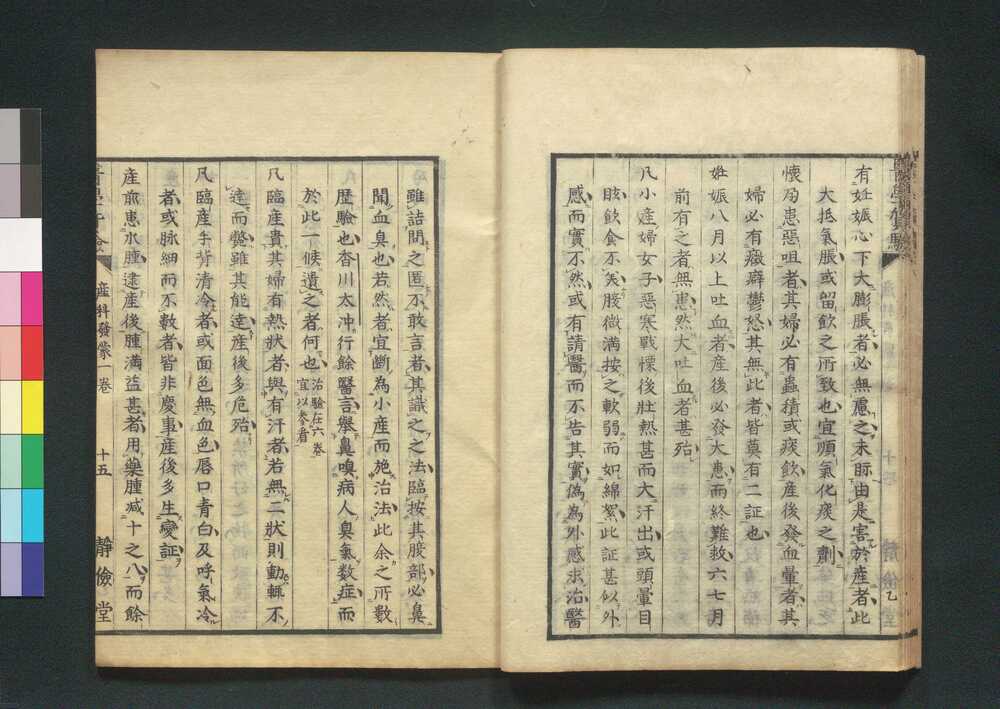 有妊娠心下大膨脹者必無慮之未眎由是害於産者此
大抵氣脹或留飲之所致也宜順氣化痰之劑
懷孕患惡咀者其婦必有蟲積或痰飲産後發血暈者其
婦必有癥癖鬱怒其無此者皆莫有二証也
妊娠八月以上吐血者産後必發大患而終難救六七月
前有之者無患然大吐血者甚殆
凡小産婦女子惡寒戰慄後壯熱甚而大汗出或頭暈目
眩飲食不美腹微満按之軟弱而如綿絮此証甚似外
感而實不然或有請醫而不告其實偽為外感求治醫
雖詰問之匿不敢言者其識之之法臨按其腹部必鼻
聞血臭也若然者宜斷為小産而施治法此余之所數
歴驗也香川太冲行餘醫言擧鼻嗅病人臭氣数症而
於此一候遺之者何也治驗在六卷宜以参看
凡臨産貴其婦有熱状者與有汗者若無二状則動輒不
達而斃雖其能達産後多危殆
凡臨産手背清冷者或面色無血色唇口青白及呼氣冷
者或脉細而不數者皆非慶事産後多生變証
産前患水腫逮産後腫満益甚者用藥腫减十之八而餘
産科發蒙一卷
十五
靜儉堂